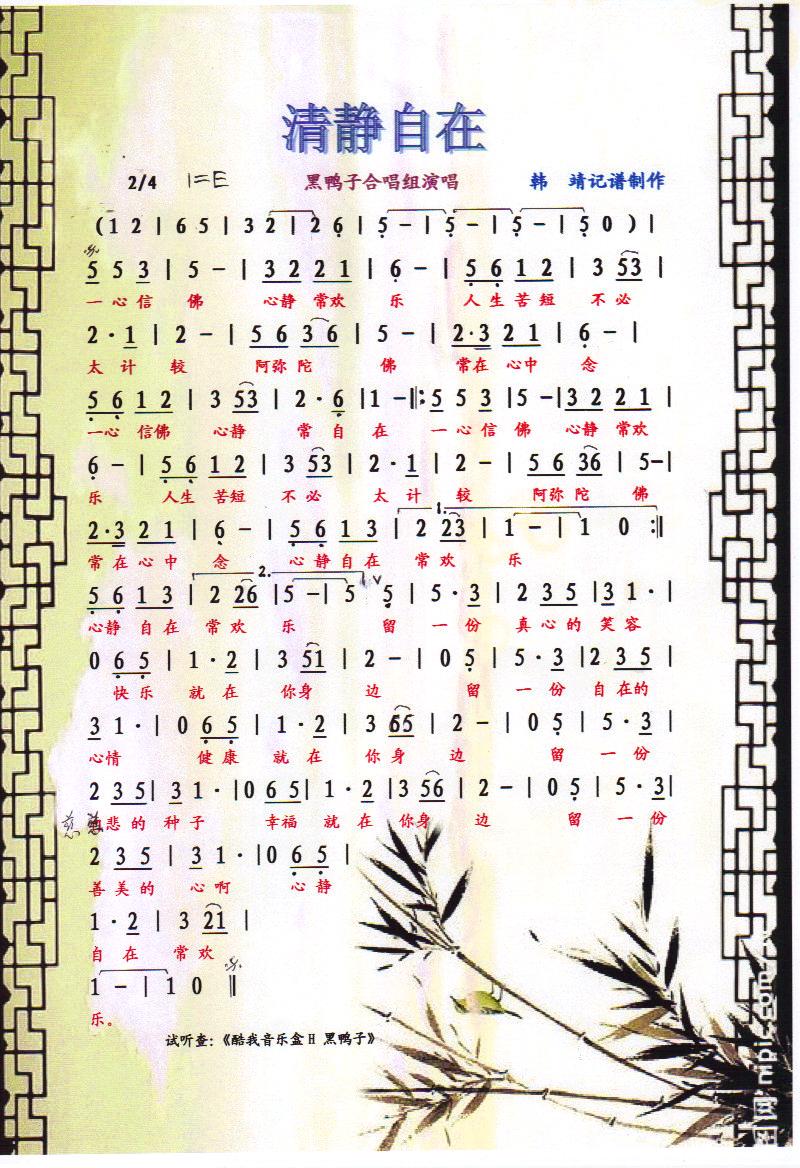 清静自在
2/4 1=E 黑鸭子合唱组演唱 韩 靖记谱制作
(1 2 | 6 5 | 3 2 | 2 6 | 5 - | 5 - | 5 - | 5 0 ) |
5 5 3 | 5 - | 3 2 2 1 | 6 - | 5 6 1 2 | 3 53 |
一 心 信 佛 心静 常欢 乐 人 生 苦 短 不 必
2 · 1 | 2 - | 5 6 3 6 | 5 - | 2·3 2 1 | 6 - |
太 计 较 阿弥 陀 佛 常在 心中 念
5 6 1 2 | 3 53 | 2 · 6 | 1 - ‖: 5 5 3 | 5 - | 3 2 2 1 |
一心 信佛 心静 常 自 在 一 心 信 佛 心静 常欢
6 - | 5 6 1 2 | 3 53 | 2 · 1 | 2 - | 5 6 36 | 5 - |
乐 人生 苦短 不 必 太 计 较 阿弥 陀 佛
2·3 2 1 | 6 - | 5 6 1 3 | 1. 2 23 | 1 - | 1 0 :‖
常 在 心 中 念 心 静 自 在 常 欢 乐
5 6 1 3 | 2. 2 26 | 5 - | 5 V 5 | 5 · 3 | 2 3 5 | 3 1 · |
心静 自 在 常 欢 乐 留 一 份 真 心 的 笑 容
0 6 5 | 1 · 2 | 3 51 | 2 - | 0 5 | 5 · 3 | 2 3 5 |
快 乐 就 在 你身 边 留 一 份 自 在的
3 1 · | 0 6 5 | 1 · 2 | 3 65 | 2 - | 0 5 | 5 · 3 |
心情 健 康 就 在 你 身 边 留 一 份
2 3 5 | 3 1 · | 0 6 5 | 1 · 2 | 3 56 | 2 - | 0 5 | 5 · 3 |
慈悲 的 种 子 幸福 就 在 你身 边 留 一 份
2 3 5 | 3 1 · | 0 6 5 |
善 美 的 心 啊 心 静
1 · 2 | 3 21 |
自 在 常 欢
1 - | 1 0 ‖
乐。
试听查:《酷我音乐盒 H 黑鸭子》